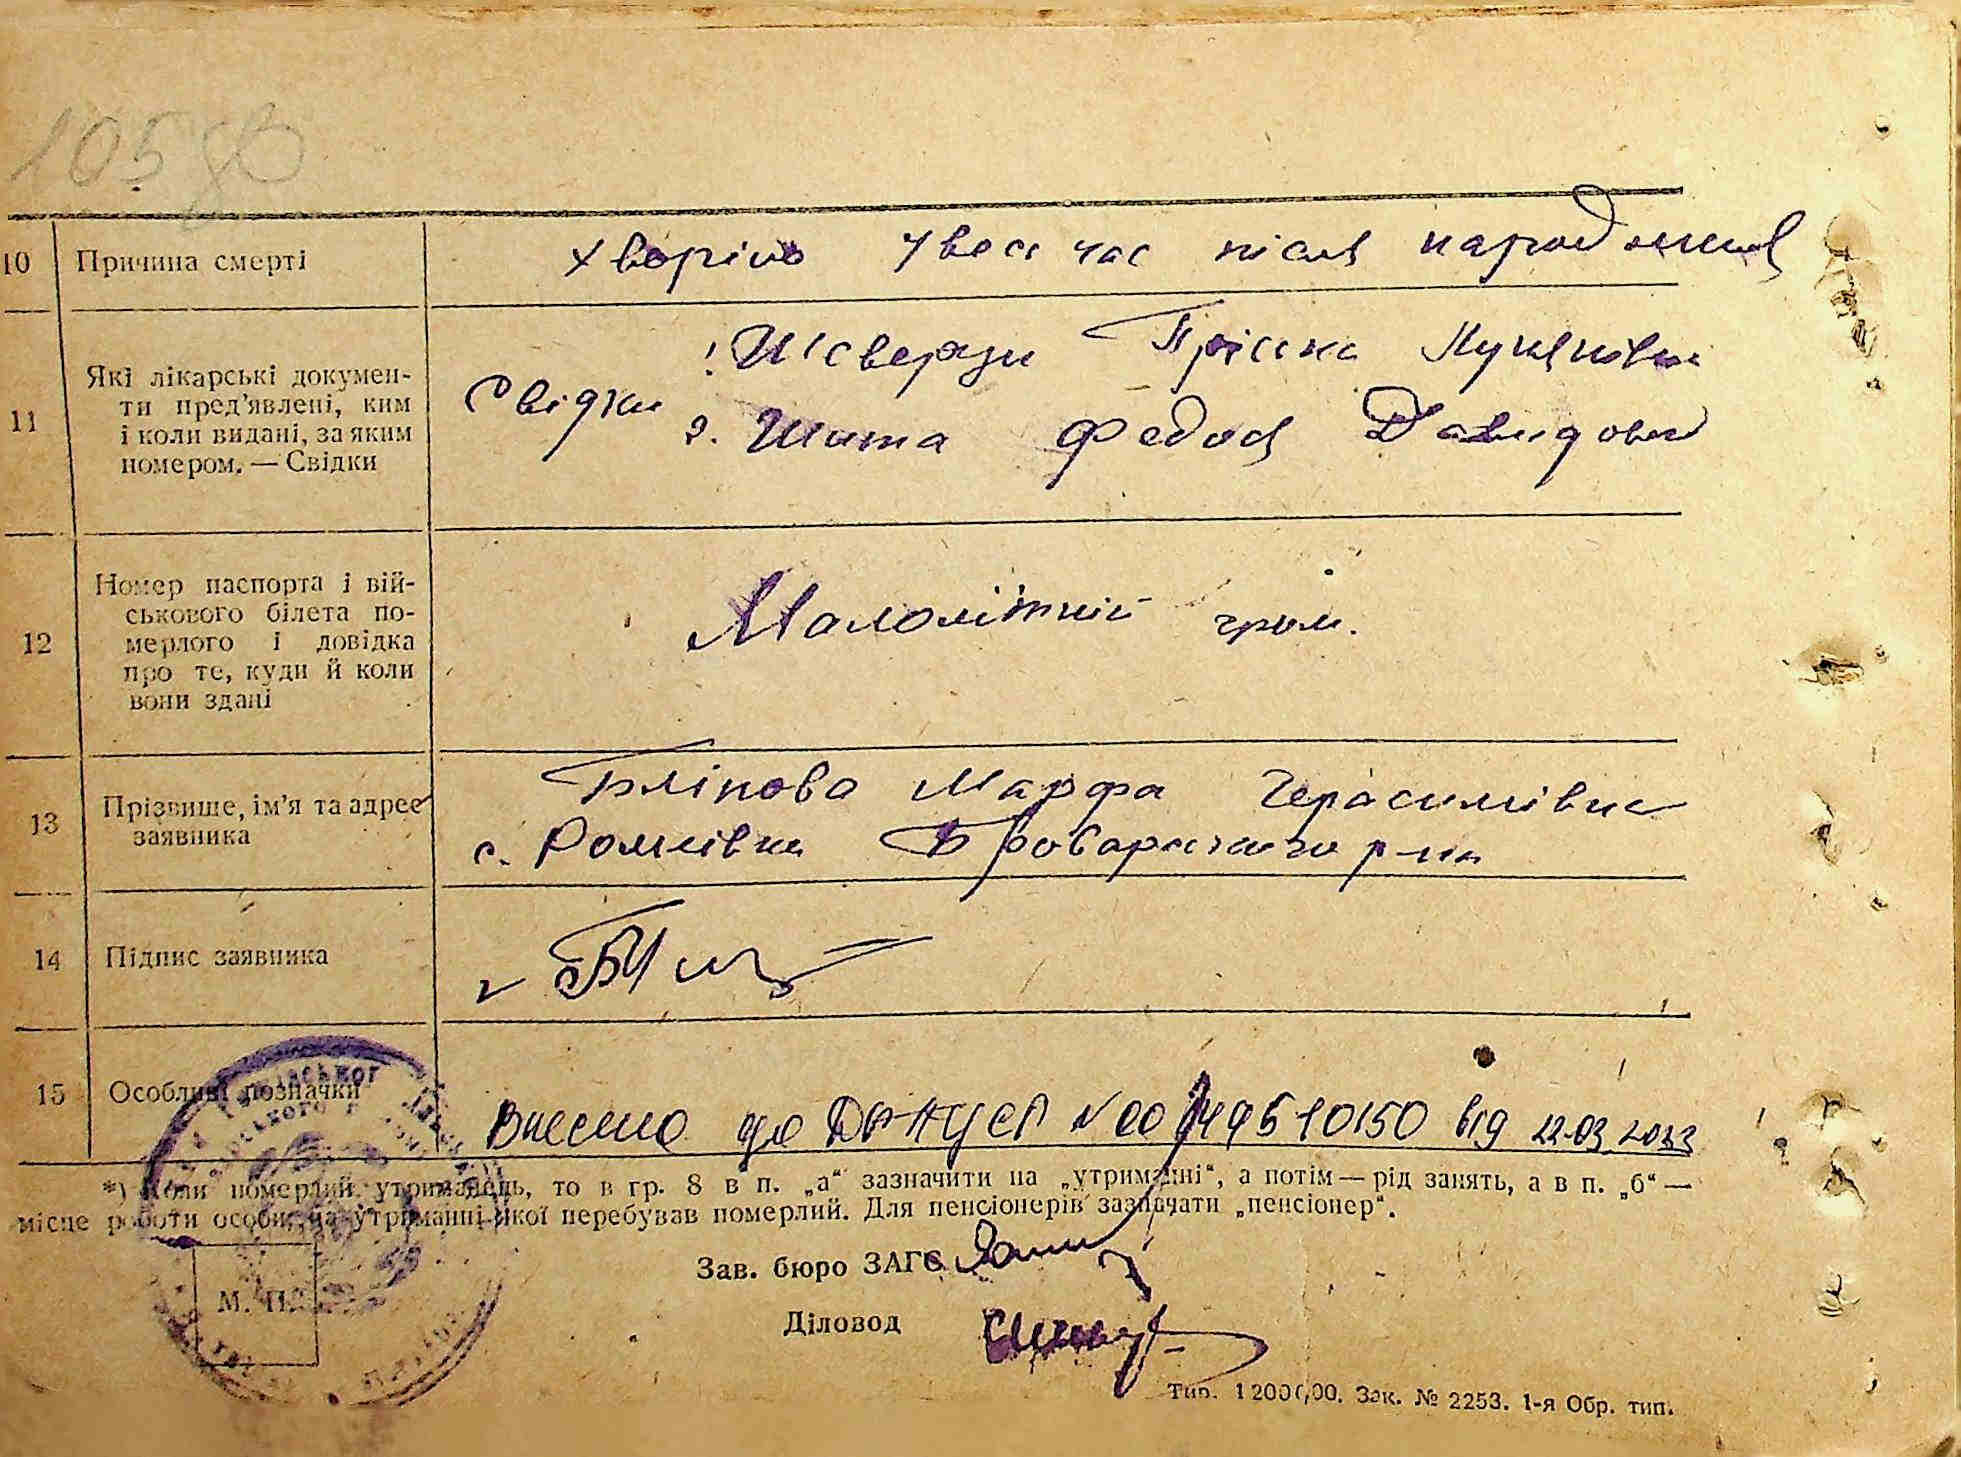 105
10 Причина смерті
хворіло увесь час після народження
11 Які лікарські докумен-
ти пред'явлені, ким
і коли видані, за яким
номером. — Свідки
Свідки
1. Пріська
2. Шита Федос Давидович
12 Номер паспорта і вій-
ськового білета по-
мерлого і довідка
про те, куди й коли
вони здані
Малолітній гром.
13 Прізвище, ім'я та адрес
заявника
Бліпова Марфа Герасимівна
с. Рожівка Броварського р-на
14 Підпис заявника
15 Особливі позначки
Внесено до ДРАЦСГ N 00 від 22.03.2023
*) Коли померлий утриманець, то в гр. 8 в п. „а“ зазначити на „утриманні“, а потім — рід занять, а в п. „б“ —
місце роботи особи, на утриманні якої перебував померлий. Для пенсіонерів зазначати „пенсіонер“.
Зав. бюро ЗАГС
М. П.
Діловод
Тир. 1200000. Зак. № 2253. 1-я Обр. тип.